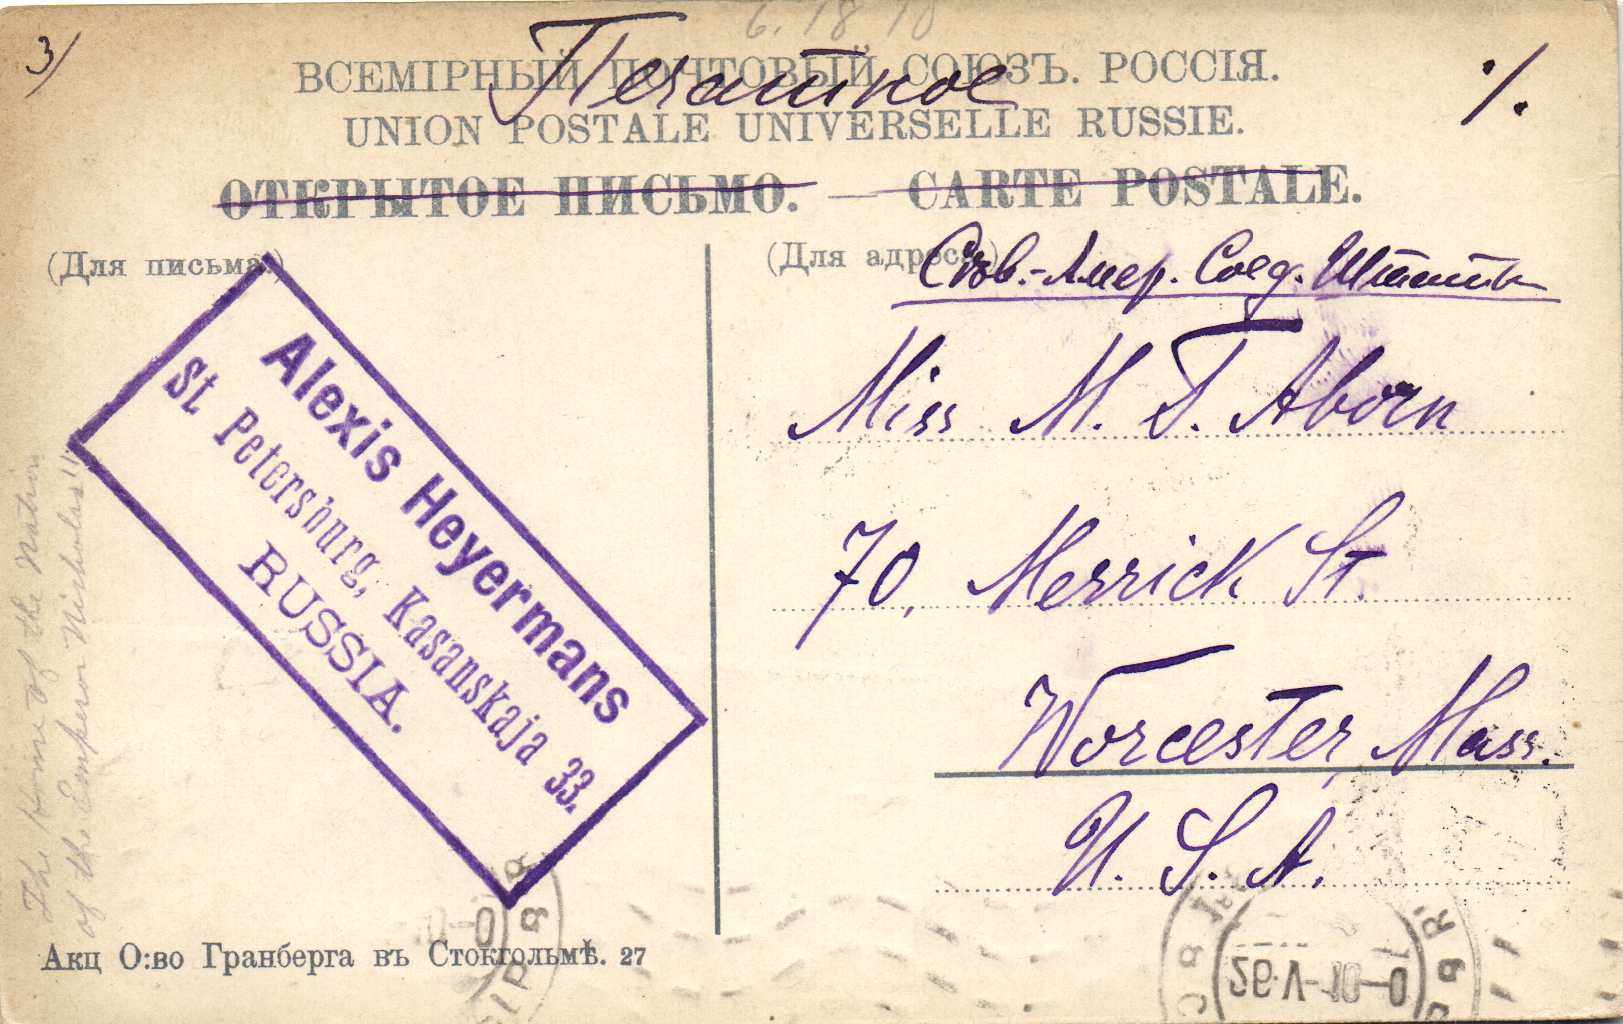 6. 18 10
3/
Печатное
1/.
ВСЕМІРНЫЙ ПОЧТОВЫЙ СОЮЗЪ. РОССІЯ.
UNION POSTALE UNIVERSELLE RUSSIE.
ОТКРЫТОЕ ПИСЬМО. — CARTE POSTALE.
(Для письма)
(Для адреса)
Сѣв.-Амер. Соед. Штаты
Miss M. T. Aborn
70, Merrick St.
Worcester, Mass.
U. S. A.
Alexis Heyermans
St. Petersburg, Kasanskaja 33.
RUSSIA.
The Home of the Nation
of the Emperor Nicholas"
Акц О:во Гранберга въ Стокгольмѣ. 27